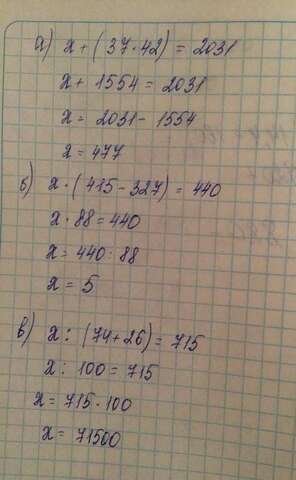 а) x + (37 · 42) = 2031
x + 1554 = 2031
x = 2031 - 1554
x = 477
б) x · (415 - 327) = 440
x · 88 = 440
x = 440 : 88
x = 5
в) x : (74 + 26) = 715
x : 100 = 715
x = 715 · 100
x = 71500